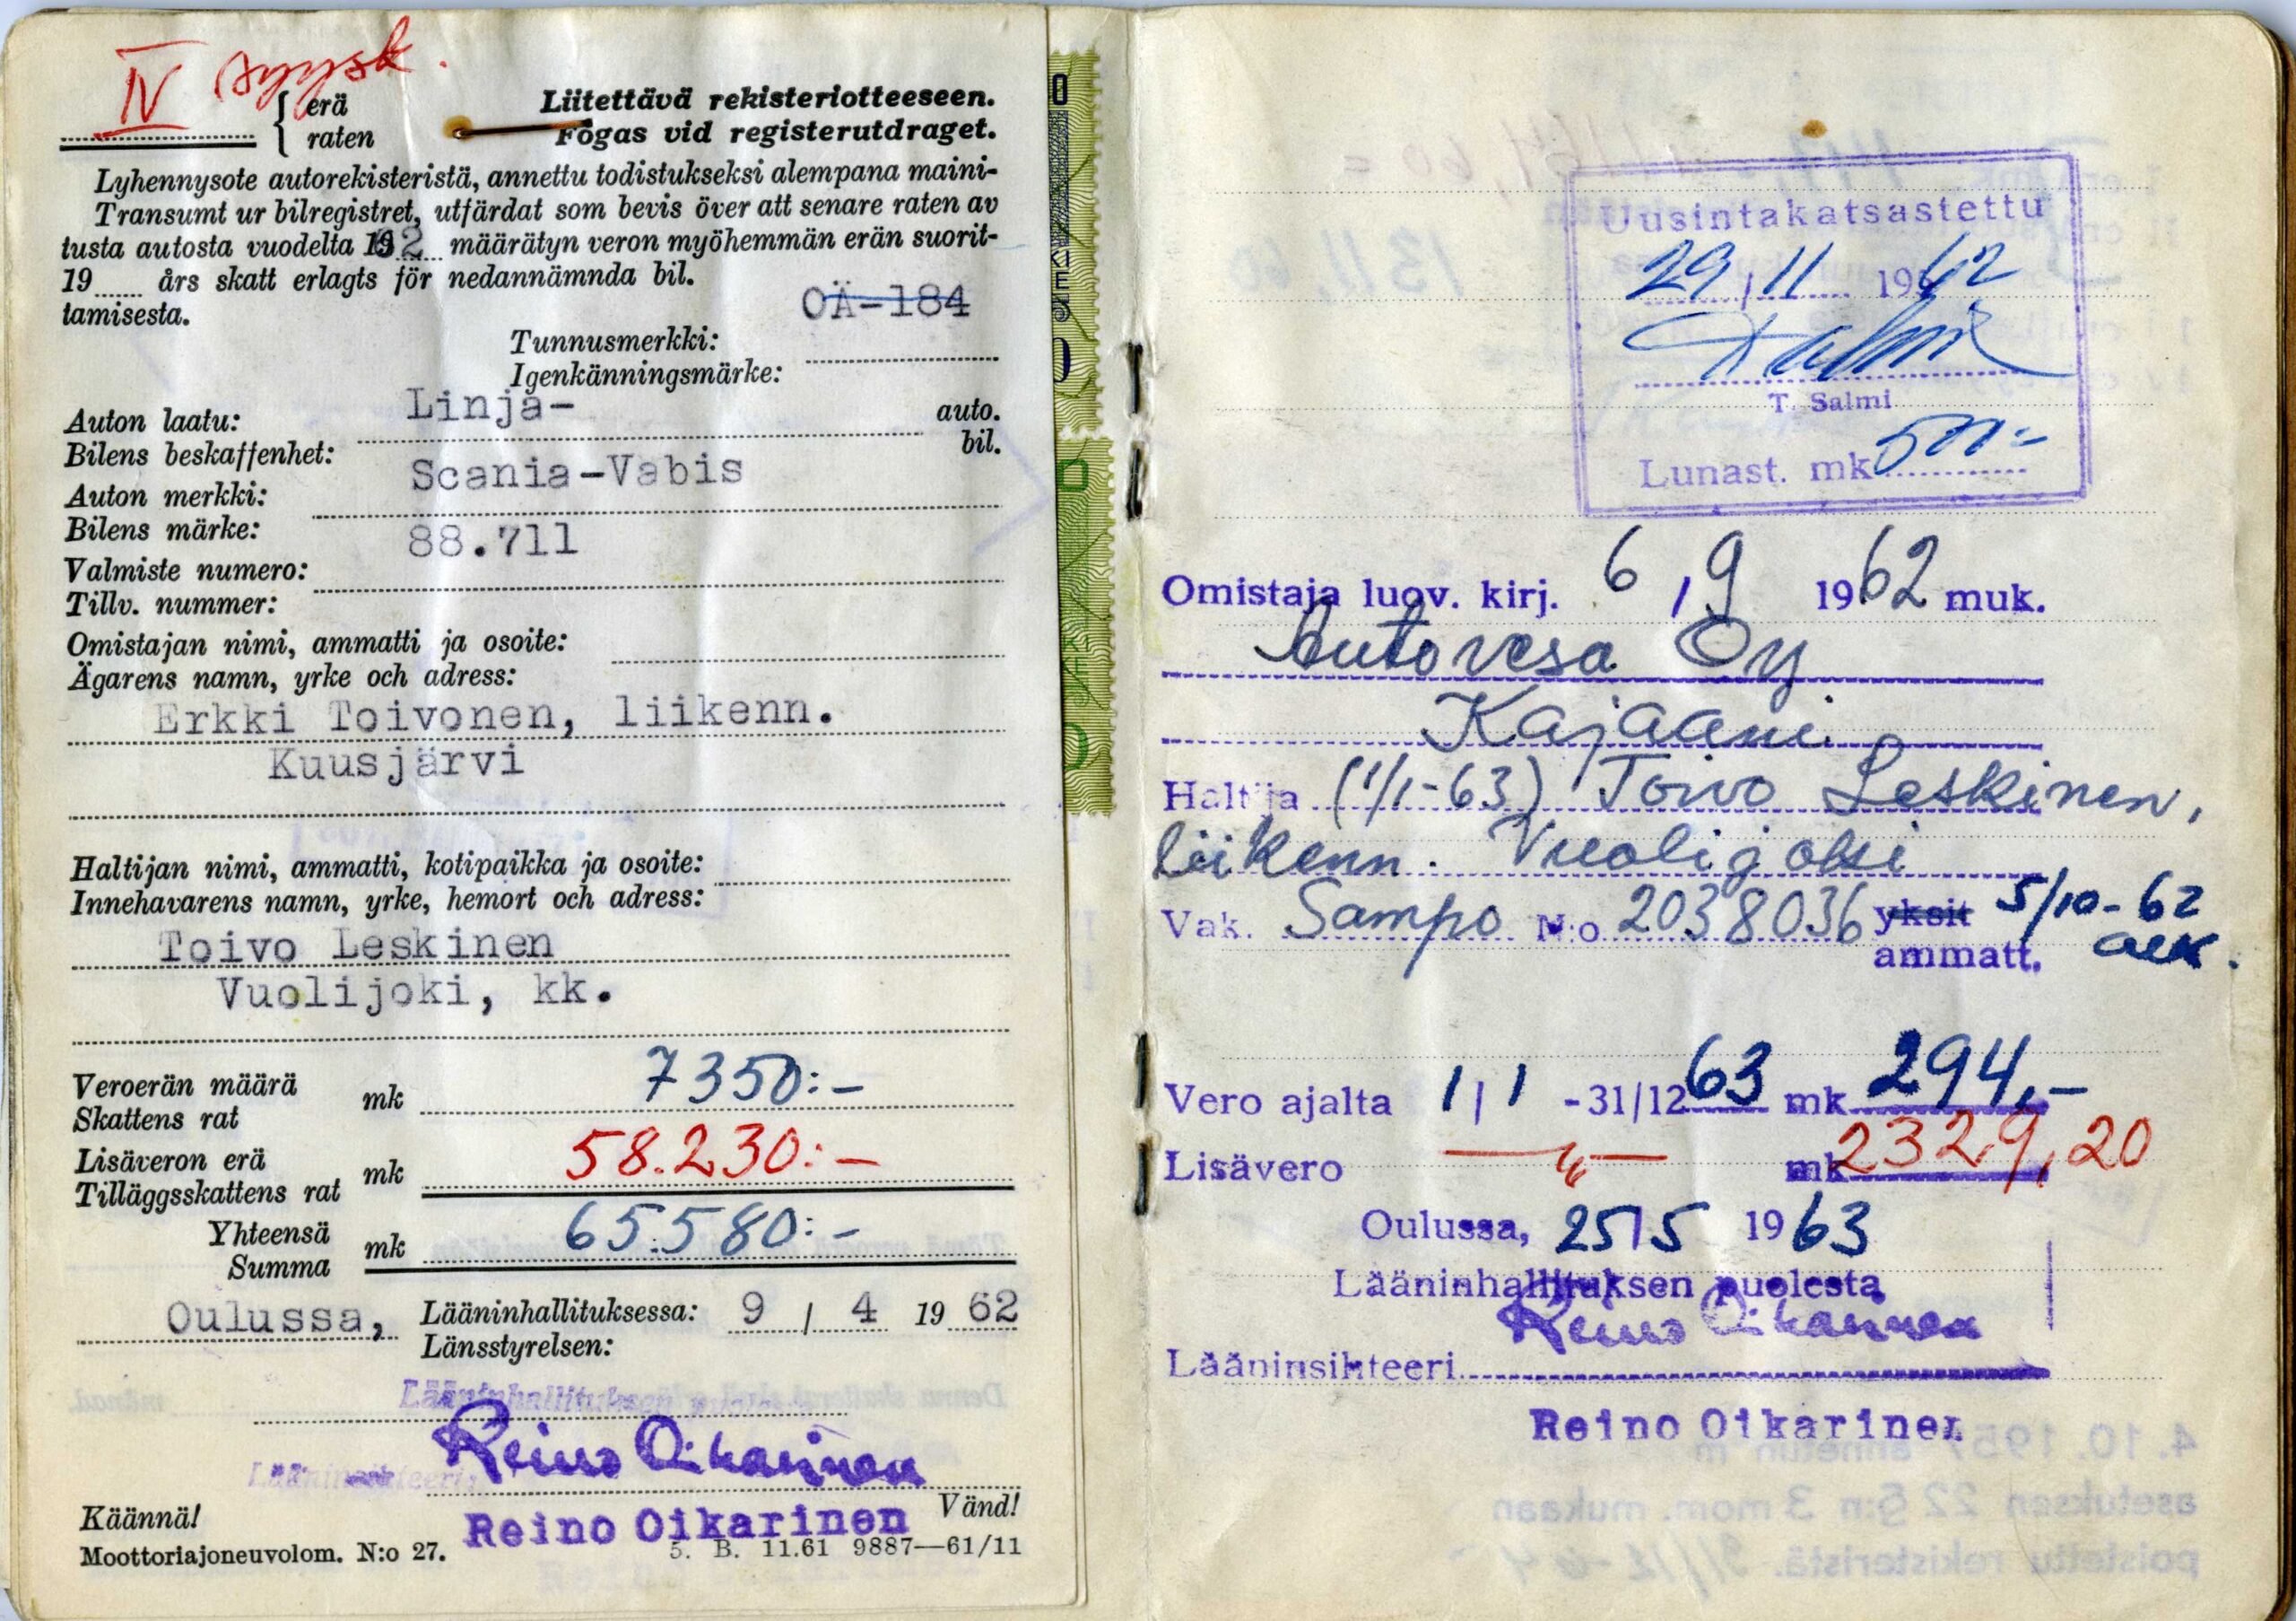 IV syysk.
erä
raten
Liitettävä rekisteriotteeseen.
Fogas vid registerutdraget.
Lyhennysote autorekisteristä, annettu todistukseksi alempana maini-
Transumt ur bilregistret, utfärdat som bevis över att senare raten av
tusta autosta vuodelta 1962 määrätyn veron myöhemmän erän suorit-
19 års skatt erlagts för nedannämnda bil.
tamisesta.
OÄ-184
Tunnusmerkki:
Igenkänningsmärke:
Auton laatu: Linja- auto.
Bilens beskaffenhet: bil.
Auton merkki: Scania-Vabis
Bilens märke:
Valmiste numero: 88.711
Tillv. nummer:
Omistajan nimi, ammatti ja osoite:
Ägarens namn, yrke och adress:
Erkki Toivonen, liikenn.
Kuusjärvi
Haltijan nimi, ammatti, kotipaikka ja osoite:
Innehavarens namn, yrke, hemort och adress:
Toivo Leskinen
Vuolijoki, kk.
Veroerän määrä mk 7350:-
Skattens rat
Lisäveron erä mk 58.230:-
Tilläggsskattens rat
Yhteensä mk 65.580:-
Summa
Oulussa, Lääninhallituksessa: 9 / 4 19 62
Länsstyrelsen:
Lääninhallituksen puolesta
Reino Oikarinen
Lääninsihteeri
Käännä! Vänd!
Reino Oikarinen
Moottoriajoneuvolom. N:o 27. 5. B. 11.61 9887—61/11
Uusintakatsastettu
29 / 11 1962
T. Salmi
Lunast. mk 500:-
Omistaja luov. kirj. 6 / 9 1962 muk.
Autovesa Oy
Kajaani
Haltija (1/1-63) Toivo Leskinen,
liikenn. Vuolijoki
Vak. Sampo N:o 2038036 yksit 5/10-62
ammatt.
Vero ajalta 1 / 1 - 31/12 63 mk 294,-
Lisävero —"— mk 2329,20
Oulussa, 25/5 1963
Lääninhallituksen puolesta
Reino Oikarinen
Lääninsihteeri
Reino Oikarinen